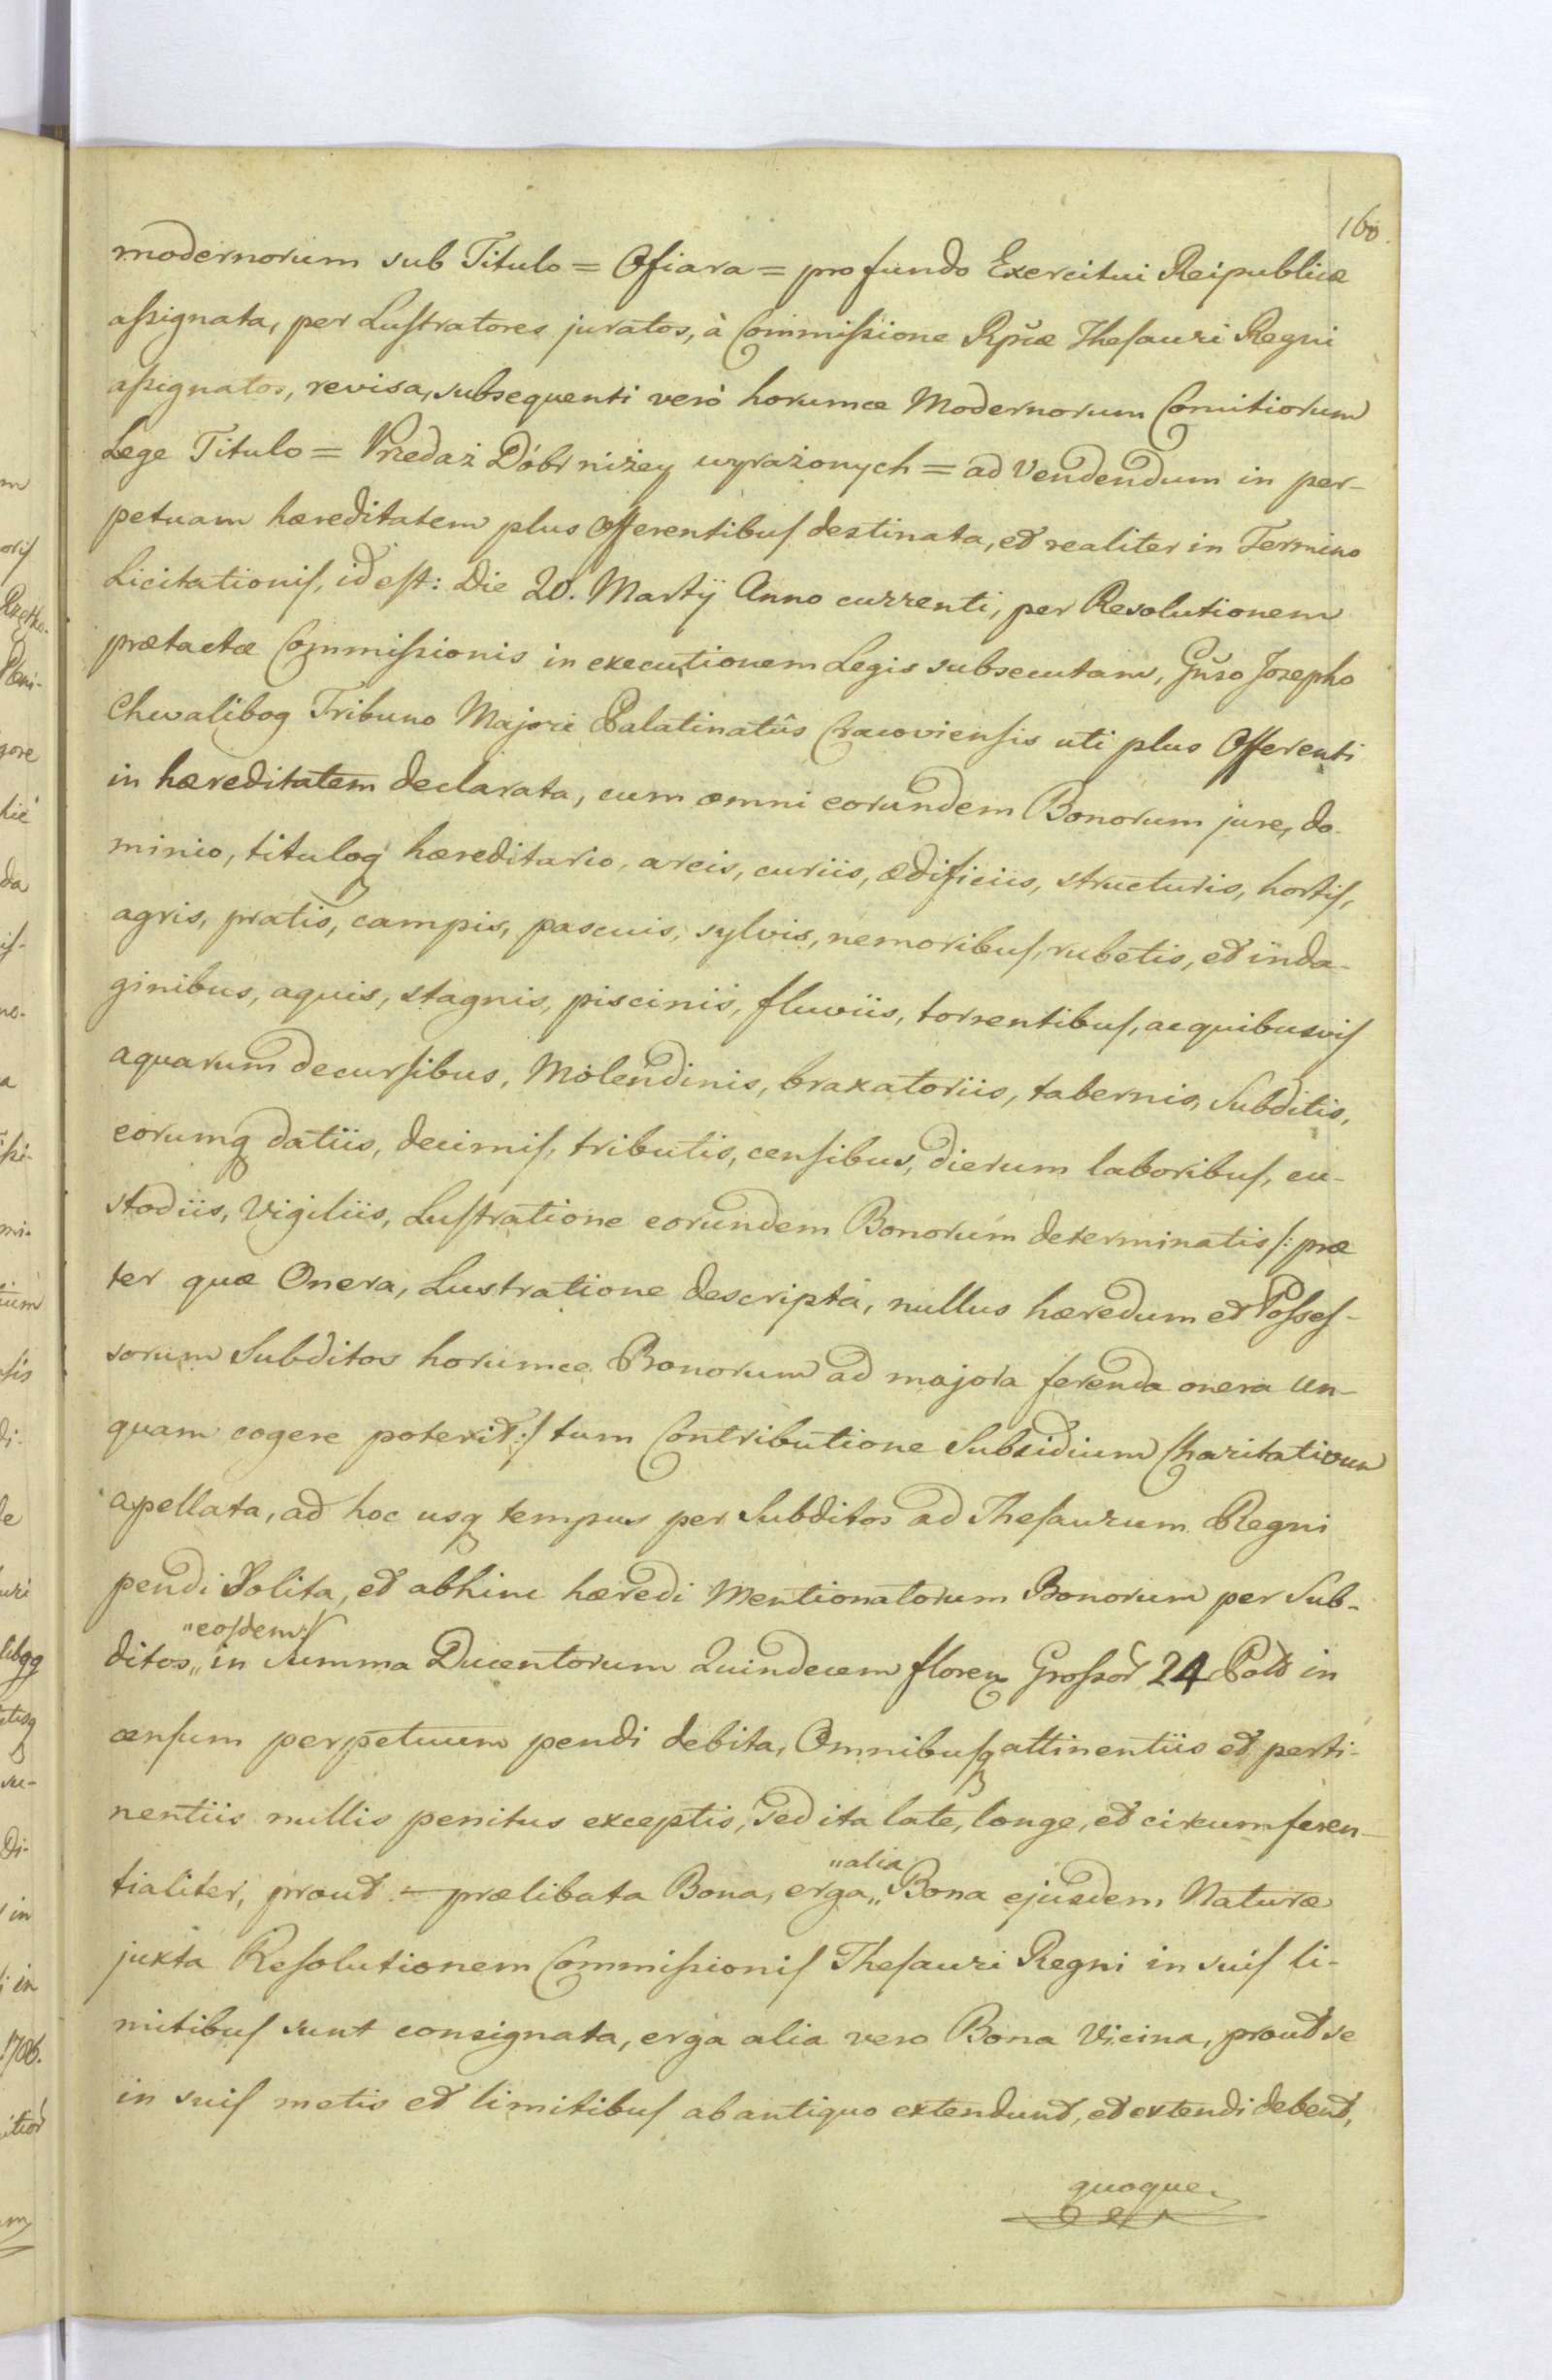 160.
modernorum sub Titulo = Ofiara = pro fundo Exercitui Reipublicæ
assignata, per Lustratores juratos, à Commissione Rpcæ Thesauri Regni
assignatos, revisa, subsequenti verò horumce Modernorum Comitiorum
Lege Titulo = Przedaż Dóbr niżey wyrażonych = ad Vendendum in per-
petuam hæreditatem plus Offerentibus destinata, et realiter in Termino
Licitationis, id est: Die 20. Martij Anno currenti, per Resolutionem
prætactæ Commissionis in executionem Legis subsecutam, Gnso Josepho
Chwalibog Tribuno Majori Palatinatûs Cracoviensis uti plus Offerenti
in hæreditatem declarata, cum omni eorundem Bonorum jure, do-
minio, tituloq hæreditario, areis, curiis, ædificiis, structuris, hortis,
agris, pratis, campis, pascuis, sylvis, nemoribus, rubetis, et inda-
ginibus, aquis, stagnis, piscinis, fluviis, torrentibus, ac quibusvis
aquarum decursibus, Molendinis, braxatoriis, tabernis, Subditis,
eorumq datiis, decimis, tributis, censibus, dierum laboribus, cu-
stodiis, Vigiliis, Lustratione eorundem Bonorum determinatis /: præ
ter quæ Onera, Lustratione descripta, nullus hæredum et Posses-
sorum Subditos horumce Bonorum ad majora ferenda onera un-
quam cogere poterit :/ tum Contributione Subsidium Charitativum
apellata, ad hoc usq tempus per Subditos ad Thesaurum Regni
pendi Solita, et abhinc hæredi Mentionatorum Bonorum per Sub-
"eosdem
ditos,, in Summa Ducentorum Quindecem floren Grossor 24 Polo in
censum perpetuum pendi debita, Omnibusq attinentiis et perti-
nentiis nullis penitus exceptis, sed ita late, longe, et circumferen-
"alia
tialiter, prout prælibata Bona, erga,, Bona ejusdem Naturæ
juxta Resolutionem Commissionis Thesauri Regni in suis li-
mitibus sunt consignata, erga alia vero Bona Vicina, prout se
in suis metis et limitibus ab antiquo extendunt, et extendi debent,
quoque